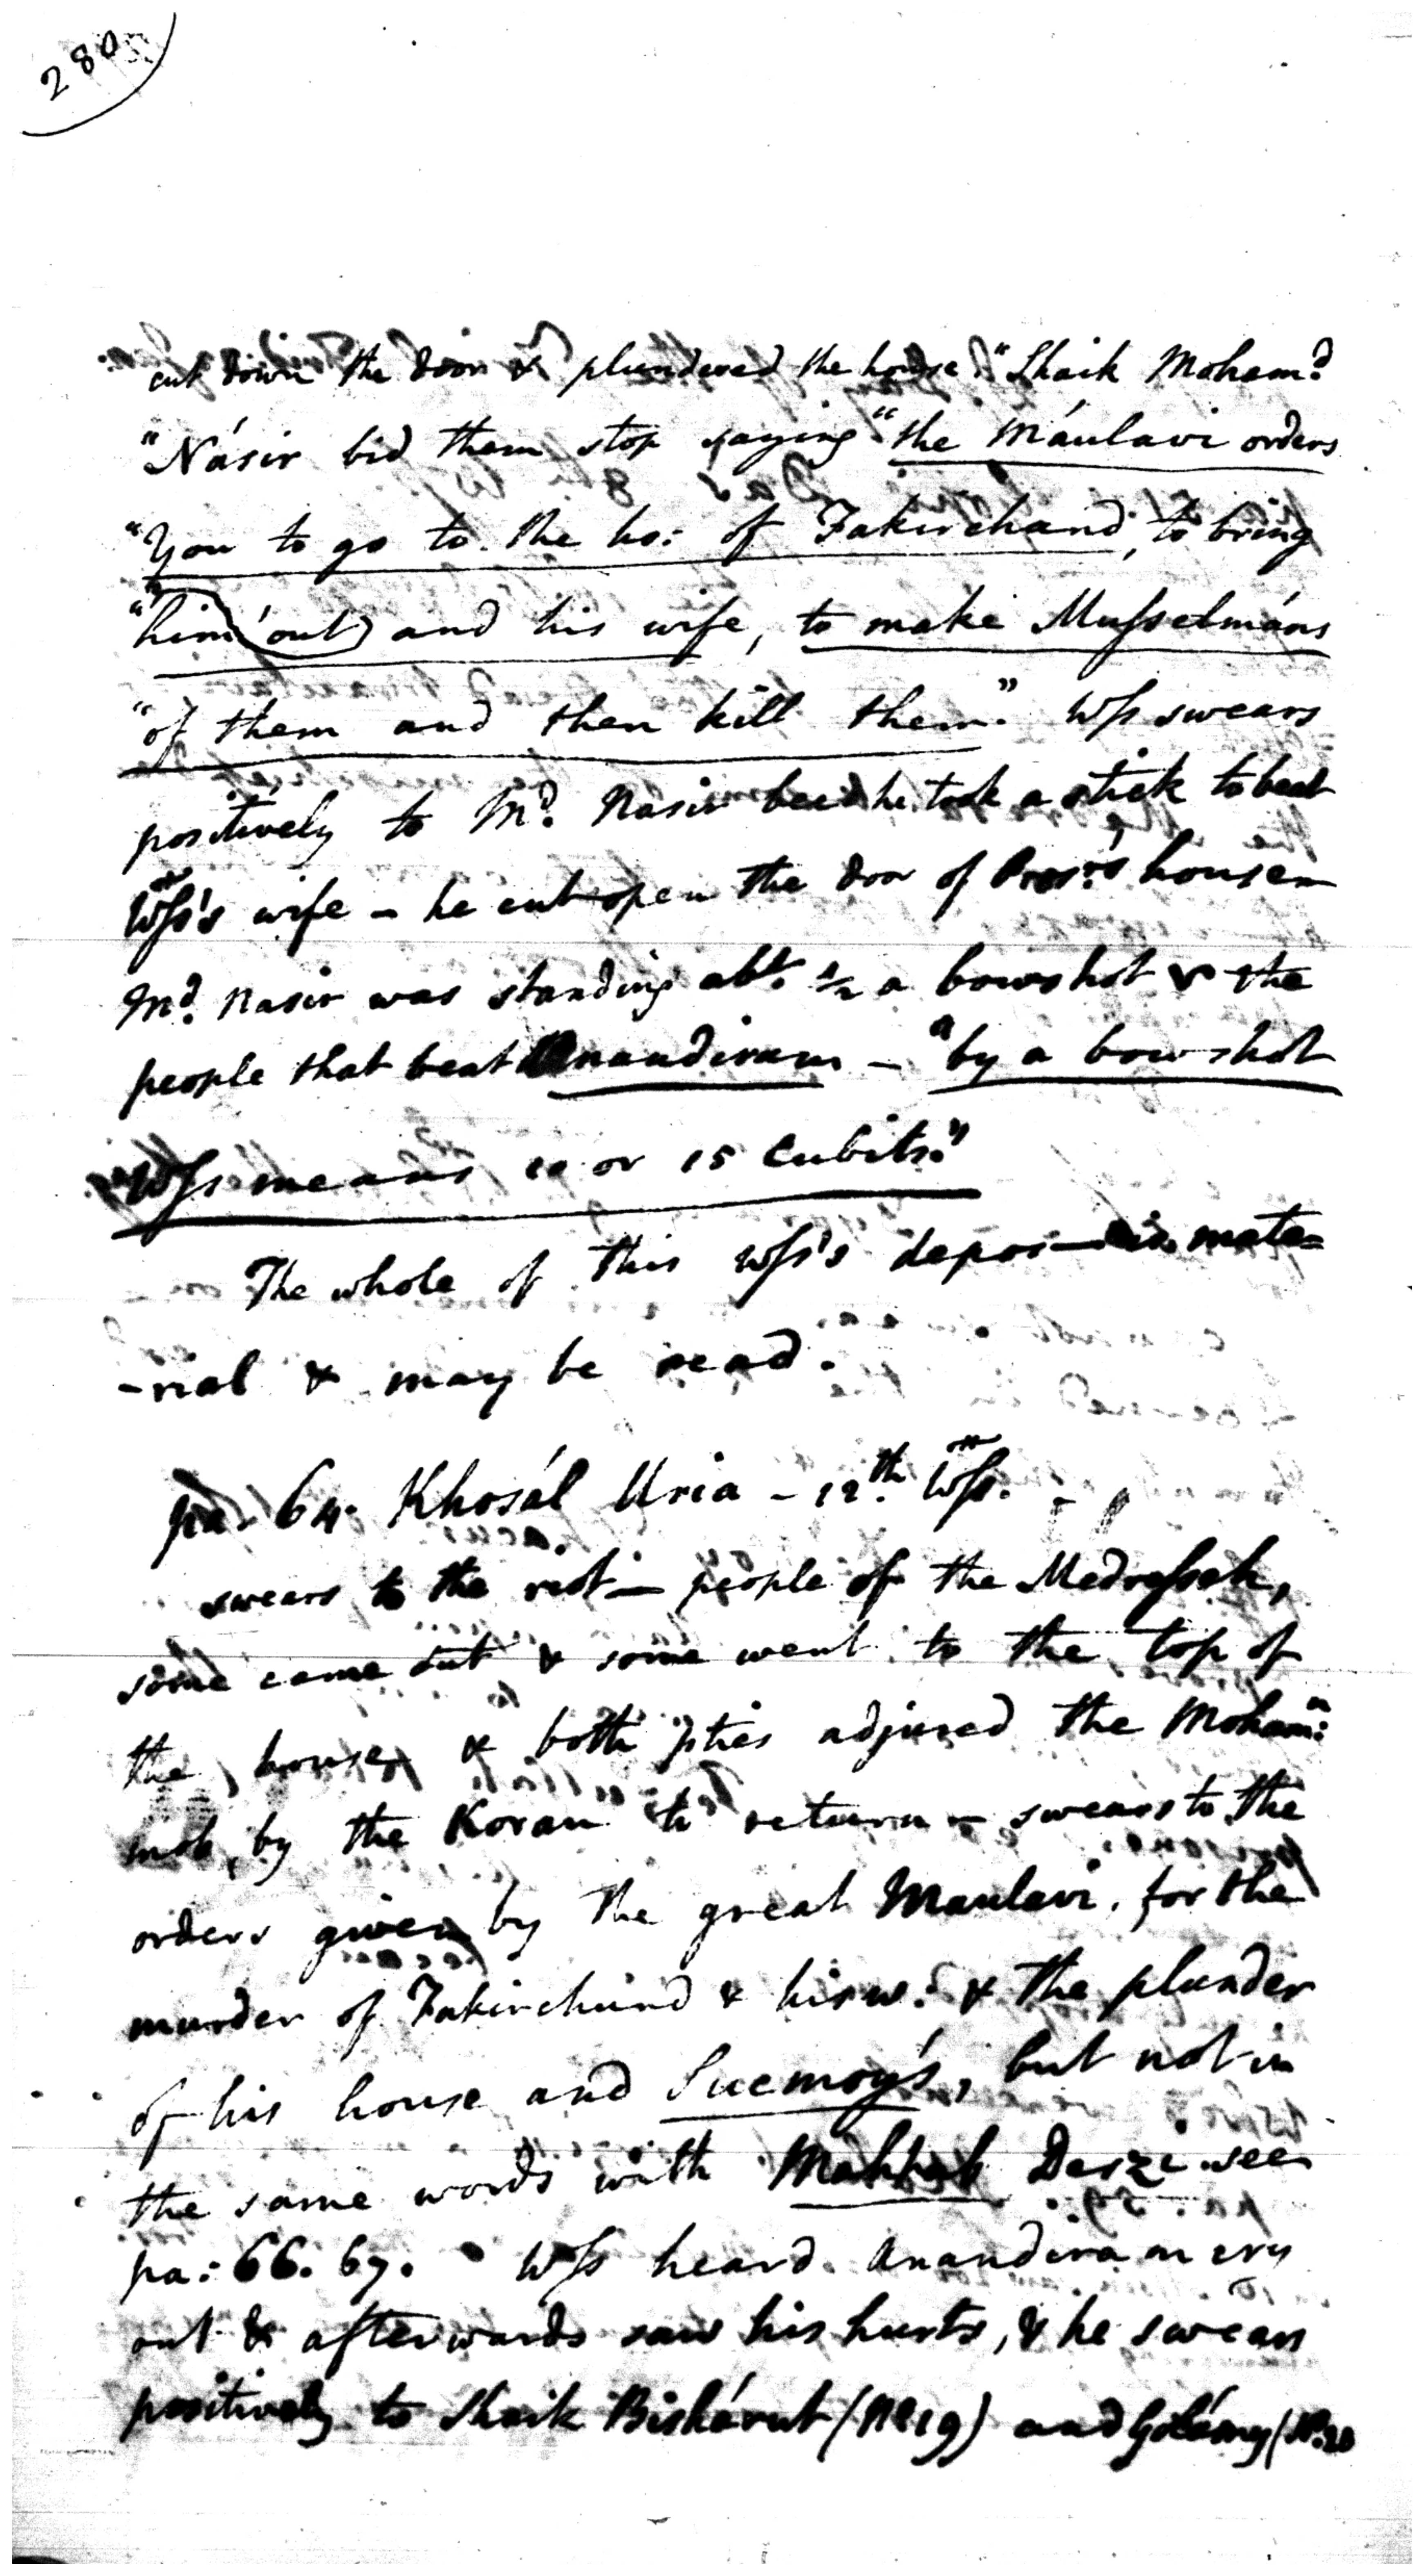 280
cut down the door & plundered the house." "Shaik Moham.d
"Násir bid them stop saying "the Máulavi orders
"You to go to the ho: of Fakirchand, to bring
"him out and his wife, to make Musselmáns
"of them and then kill them." Wss swears
positively to Md. Nasir he took a stick to beat
Wss's wife – he cut open the door of Pros:r's house –
Md. Nasir was standing abt. ½ a bowshot & the
people that beat Anandiram – "by a bowshot
Wss means 10 or 15 Cubits."
The whole of this Wss's depos– is mate=
-rial & may be read.
pa. 64. Khosál Uria – 12th. Wss. –
swears to the riot – people of the Medresseh,
some came out & some went to the top of
the house & both pties adjured the Moham:n
mob, by the Koran to return – swears to the
orders given by the great Maulavi, for the
murder of Fakirchund & his w. & the plunder
of his house and Sucmoy's, but not in
the same words with Mahtab Derzi see
pa: 66. 67. Wss heard Anandiram cry
out & afterwards saw his hurts, & he swears
positively to Shaik Bishárut (No 19) and Golámy (No. 20